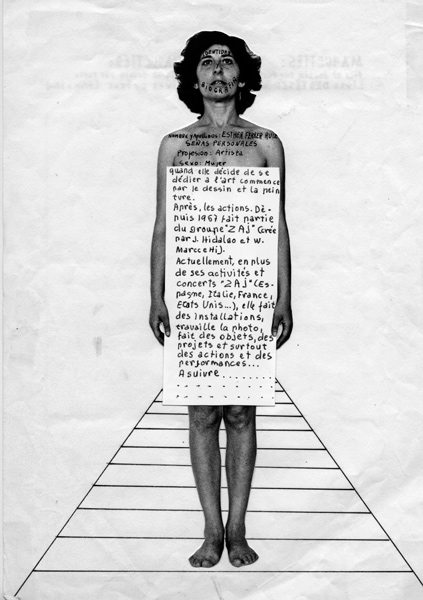 BIOGRAFIA
Nombre y Apellidos: ESTHER FERRER RUIZ
SEÑAS PERSONALES
Profesion: Artista
Sexo: Mujer
quand elle décide de se
dédier a l'art commence
par le dessin et la pein
ture.
Après, les actions. De-
nuis 1967 fait partie
du Groupe "ZAJ" (crée
par J. Hidalgo et W.
Marchetti).
Actuellement, en plus
de ses activités et
concerts "ZAJ" (Es-
pagne, Italie, France,
Etats Unis...), elle fait
des installations,
travaille la photo,
fait des objets, des
projets et surtout
des actions et des
performances...
A suivre........